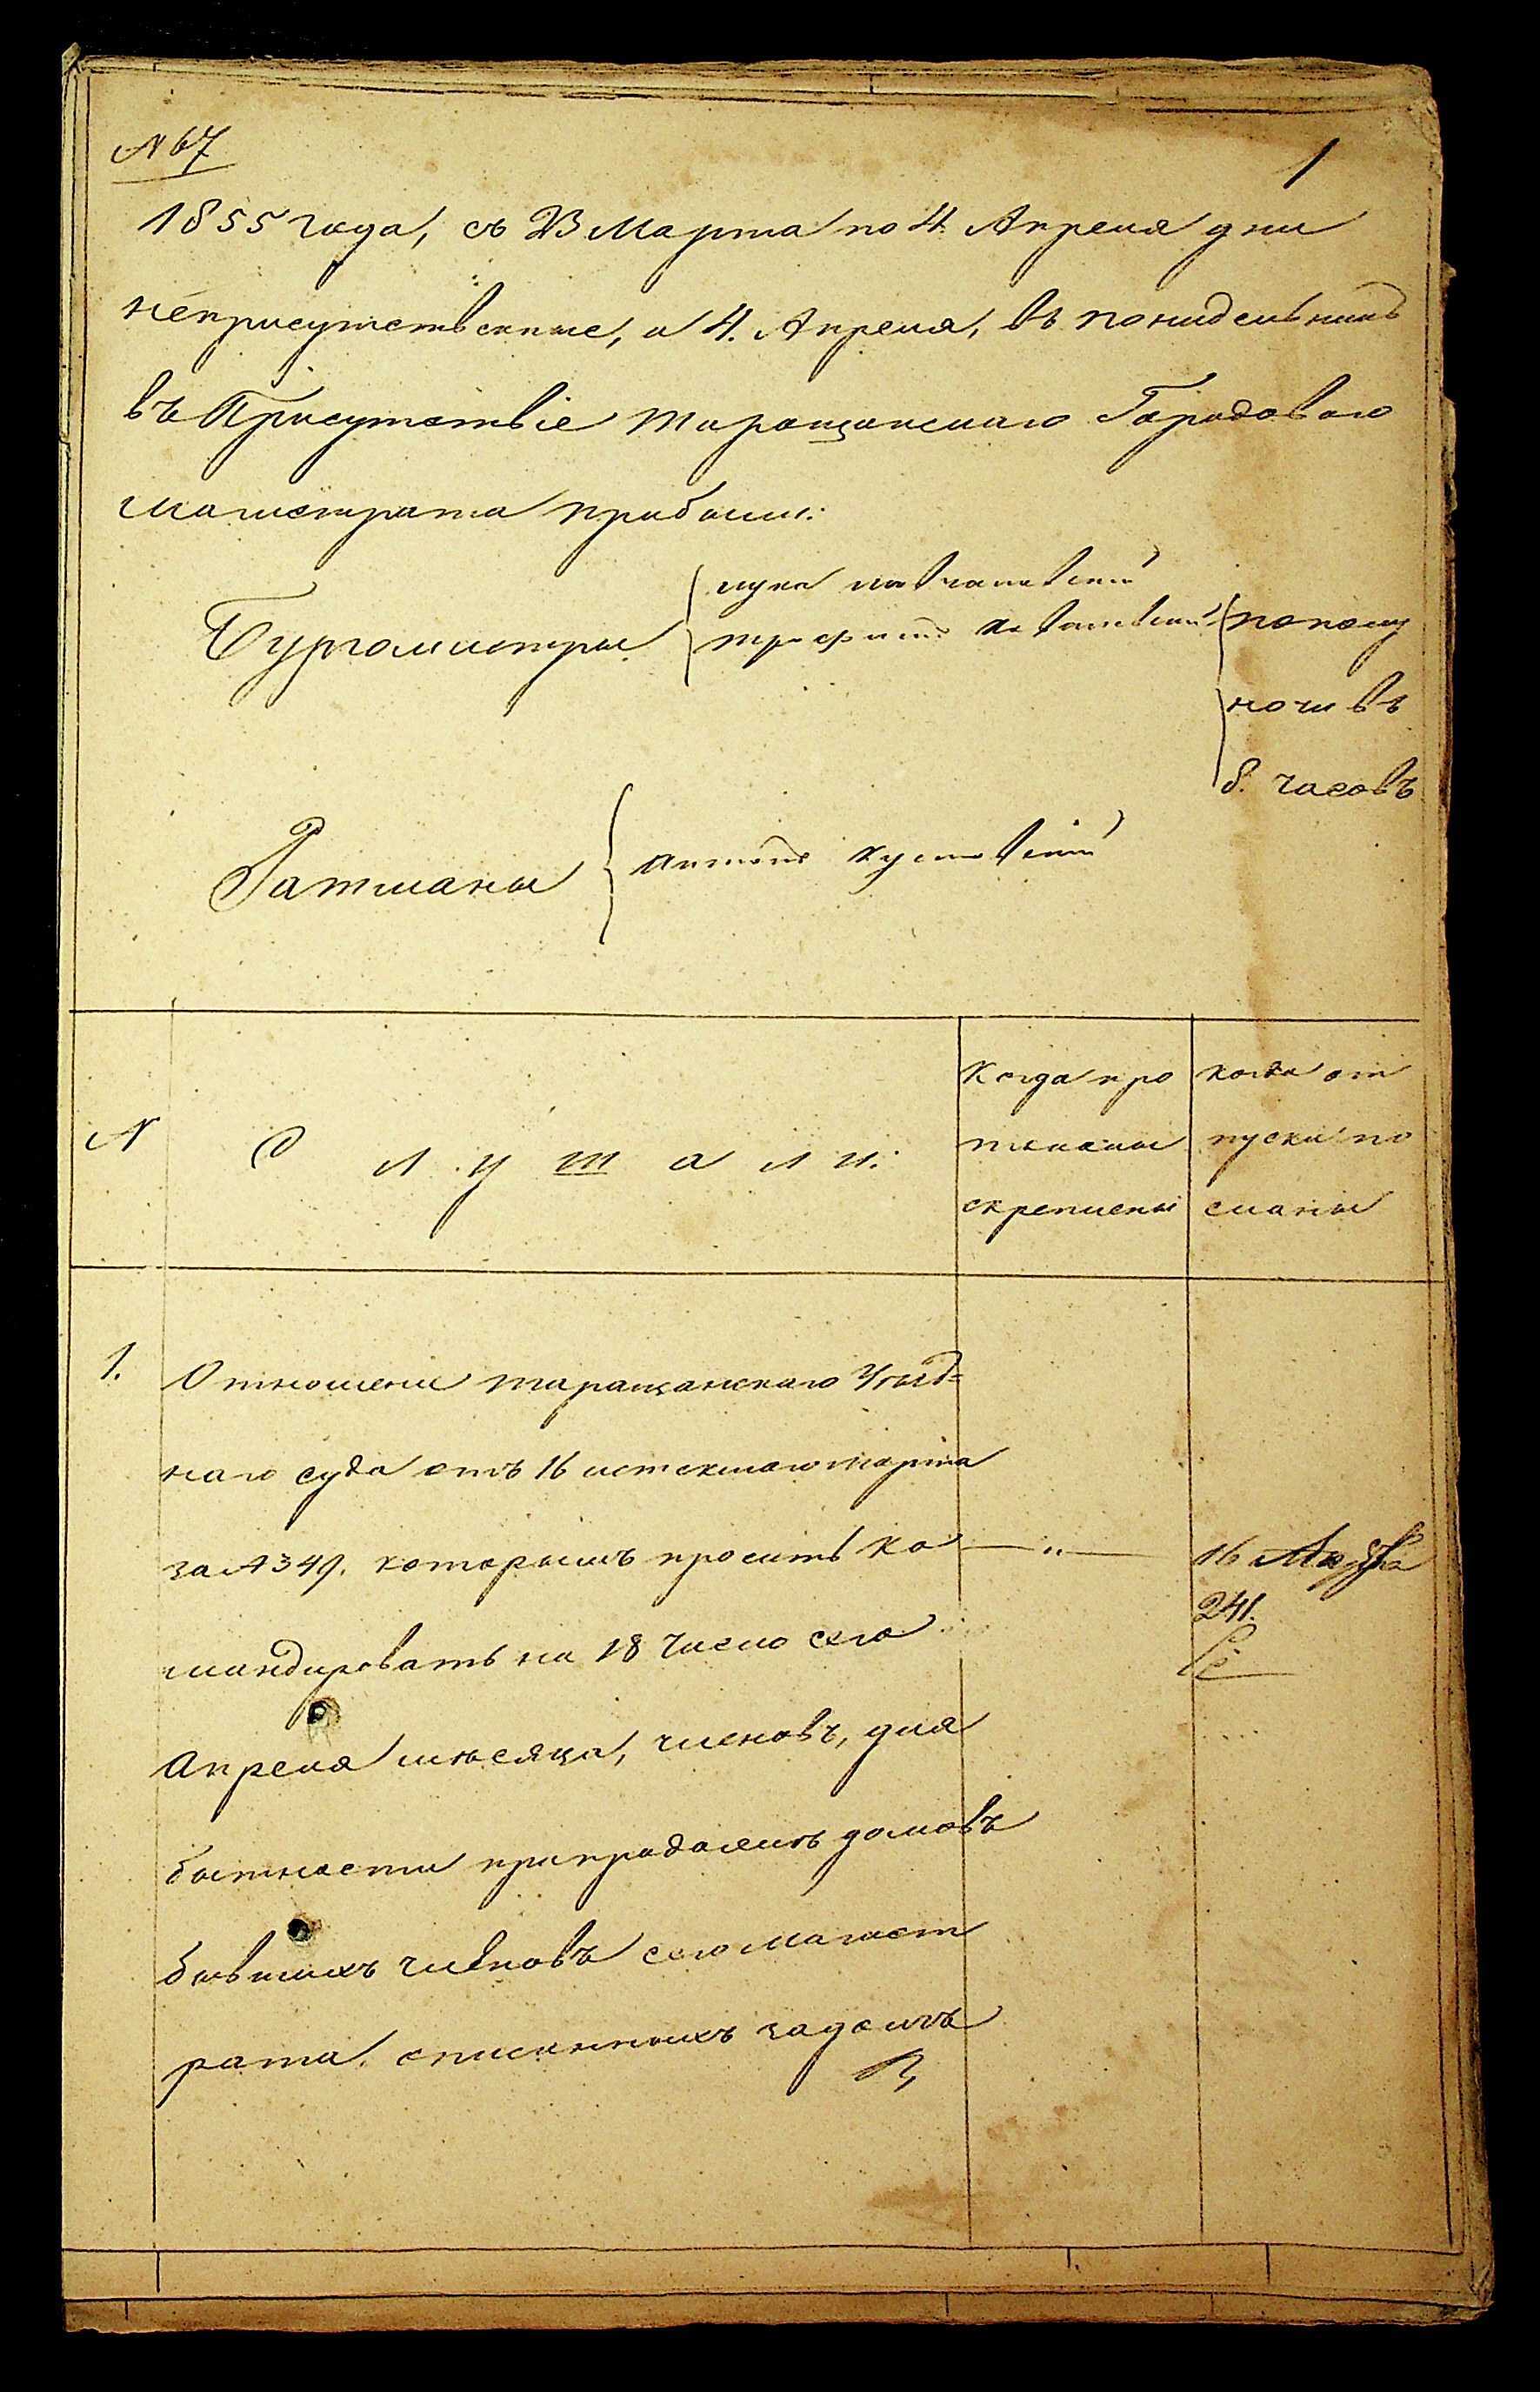 № 67
1
1855 года, съ 23 Марта по 4 Апреля дни
неприсутственные, а 4. Апреля, въ понидельникъ
въ Присутствіе Таращанскаго Городоваго
магистрата прибыли:
Бургомистры
Лука
Трофимъ
по полу
ночи въ
8. часовъ
Ратманы
Антонъ
№
Слушали:
Когда про
токолы
скреплены
когда от
пуски по
сланы
1.
Отношени Таращанскаго Уѣзд=
наго суда отъ 16 истекшаго марта
за № 349. которымъ проситъ ко
мандировать на 18 число сего
Апреля мѣсяца, членовъ, для
бытности при продажѣ домовъ
бывшихъ членовъ сего магист
рата. описанныхъ задолгъ
16 Апреля
241.